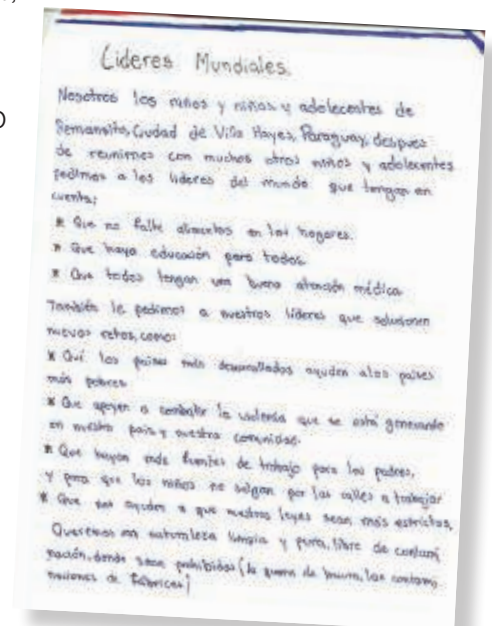 Lideres Mundiales.
Nosotros los niños y niñas y adolecentes de
Remansito, Ciudad de Villa Hayes, Paraguay, despues
de reunirnos con muchos otros niños y adolecentes
pedimos a los lideres del mundo que tengan en
cuenta:
* Que no falte alimentos en los hogares.
* Que haya educación para todos.
* Que todos tengan una buena atención médica.
También le pedimos a nuestros líderes que solucionen
nuevos retos, como:
* Qué los paises más desarrollados ayuden a los paises
más pobres.
* Que apoyen a combatir la violensia que se está generando
en nuestro pais y nuestra comunidad.
* Que hayan más fuentes de trabajo para los padres,
y para que los niños no salgan por las calles a trabajar
* Que nos ayuden a que nuestras leyes sean más estrictas,
Queremos una naturaleza limpia y pura, libre de contami
nación, donde sean prohibidos (la quema de basura, las contami
naciones de fábricas)